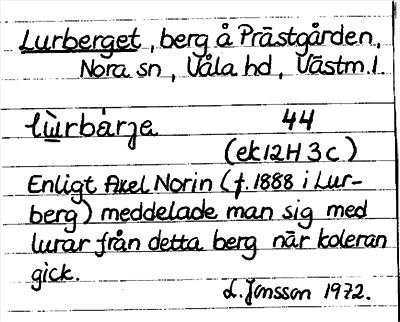 Lurberget, berg å Prästgården,
Nora sn, Våla hd, Västm. l.
lùrbàrja 44
(ek 12H 3c)
Enligt Axel Norin (f. 1888 i Lur-
berg) meddelade man sig med
lurar från detta berg när koleran
gick.
L. Jonsson 1972.